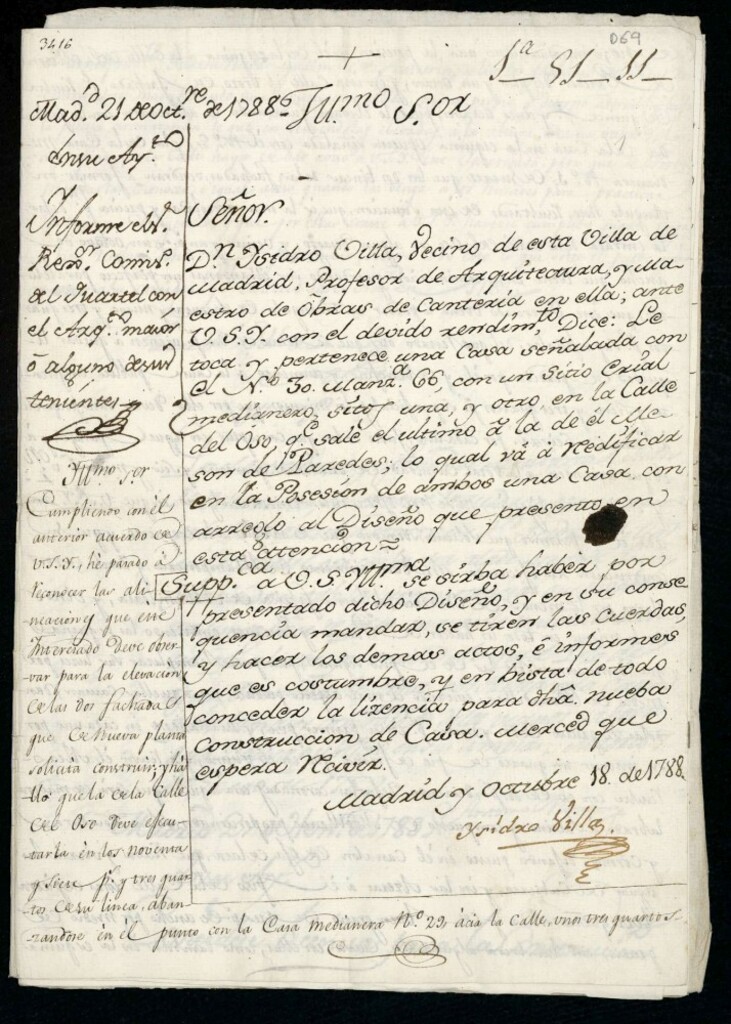 3416
D69
1ª 51 11
Mad.d 21 de Oct.re de 1788
Yll.mo S.or
Ensu Ay.to
Informe el S.r
Rex.or Comis.
del Quartel con
el Arq.to maior
ó alguno de sus
tenientes
Yll.mo S.or
Cumpliendo con el
anterior acuerdo de
V.S.Y., he pasado á
reconocer las ali
neaciones que el
Interesado deve obser-
var para la elevacion
de las dos fachadas
que de nueva planta
solicita construir; y ha-
llo que la de la Calle
del Oso deve ejecu-
tarla en los noventa
y siete p.s y tres quar-
tos de su linea, aban-
zandose en el punto con la Casa medianera Nº. 29, ácia la calle, unos tres quartos
Señor.
D.n Ysidro Villa, Vecino de esta Villa de
Madrid, Profesor de Arquitectura, y Ma-
estro de Obras de Canteria en ella; ante
V.S.Y. con el devido rendim.to Dice: Le
toca y pertenece una Casa señalada con
el N.º 30. Manz.a 66, con un Sitio Erial
medianero, sitos una, y otro en la Calle
del Oso q.e sale el ultimo á la de el Me-
son de Paredes; lo qual vá á redificar
en la Posesion de ambos una Casa con
arreglo al Diseño que presento en
esta atencion =
Supp.ca a V.S. Yll.ma se sirba haber por
presentado dicho Diseño, y en su conse
quencia mandar, se tiren las Cuerdas,
y hacer los demas actos, é informes
que es costumbre, y en bista de todo
conceder la lizencia para dhâ. nueba
Construccion de Casa. Merced que
espera recivir.
Madrid y Octubre 18. de 1788.
Ysidro Villa.